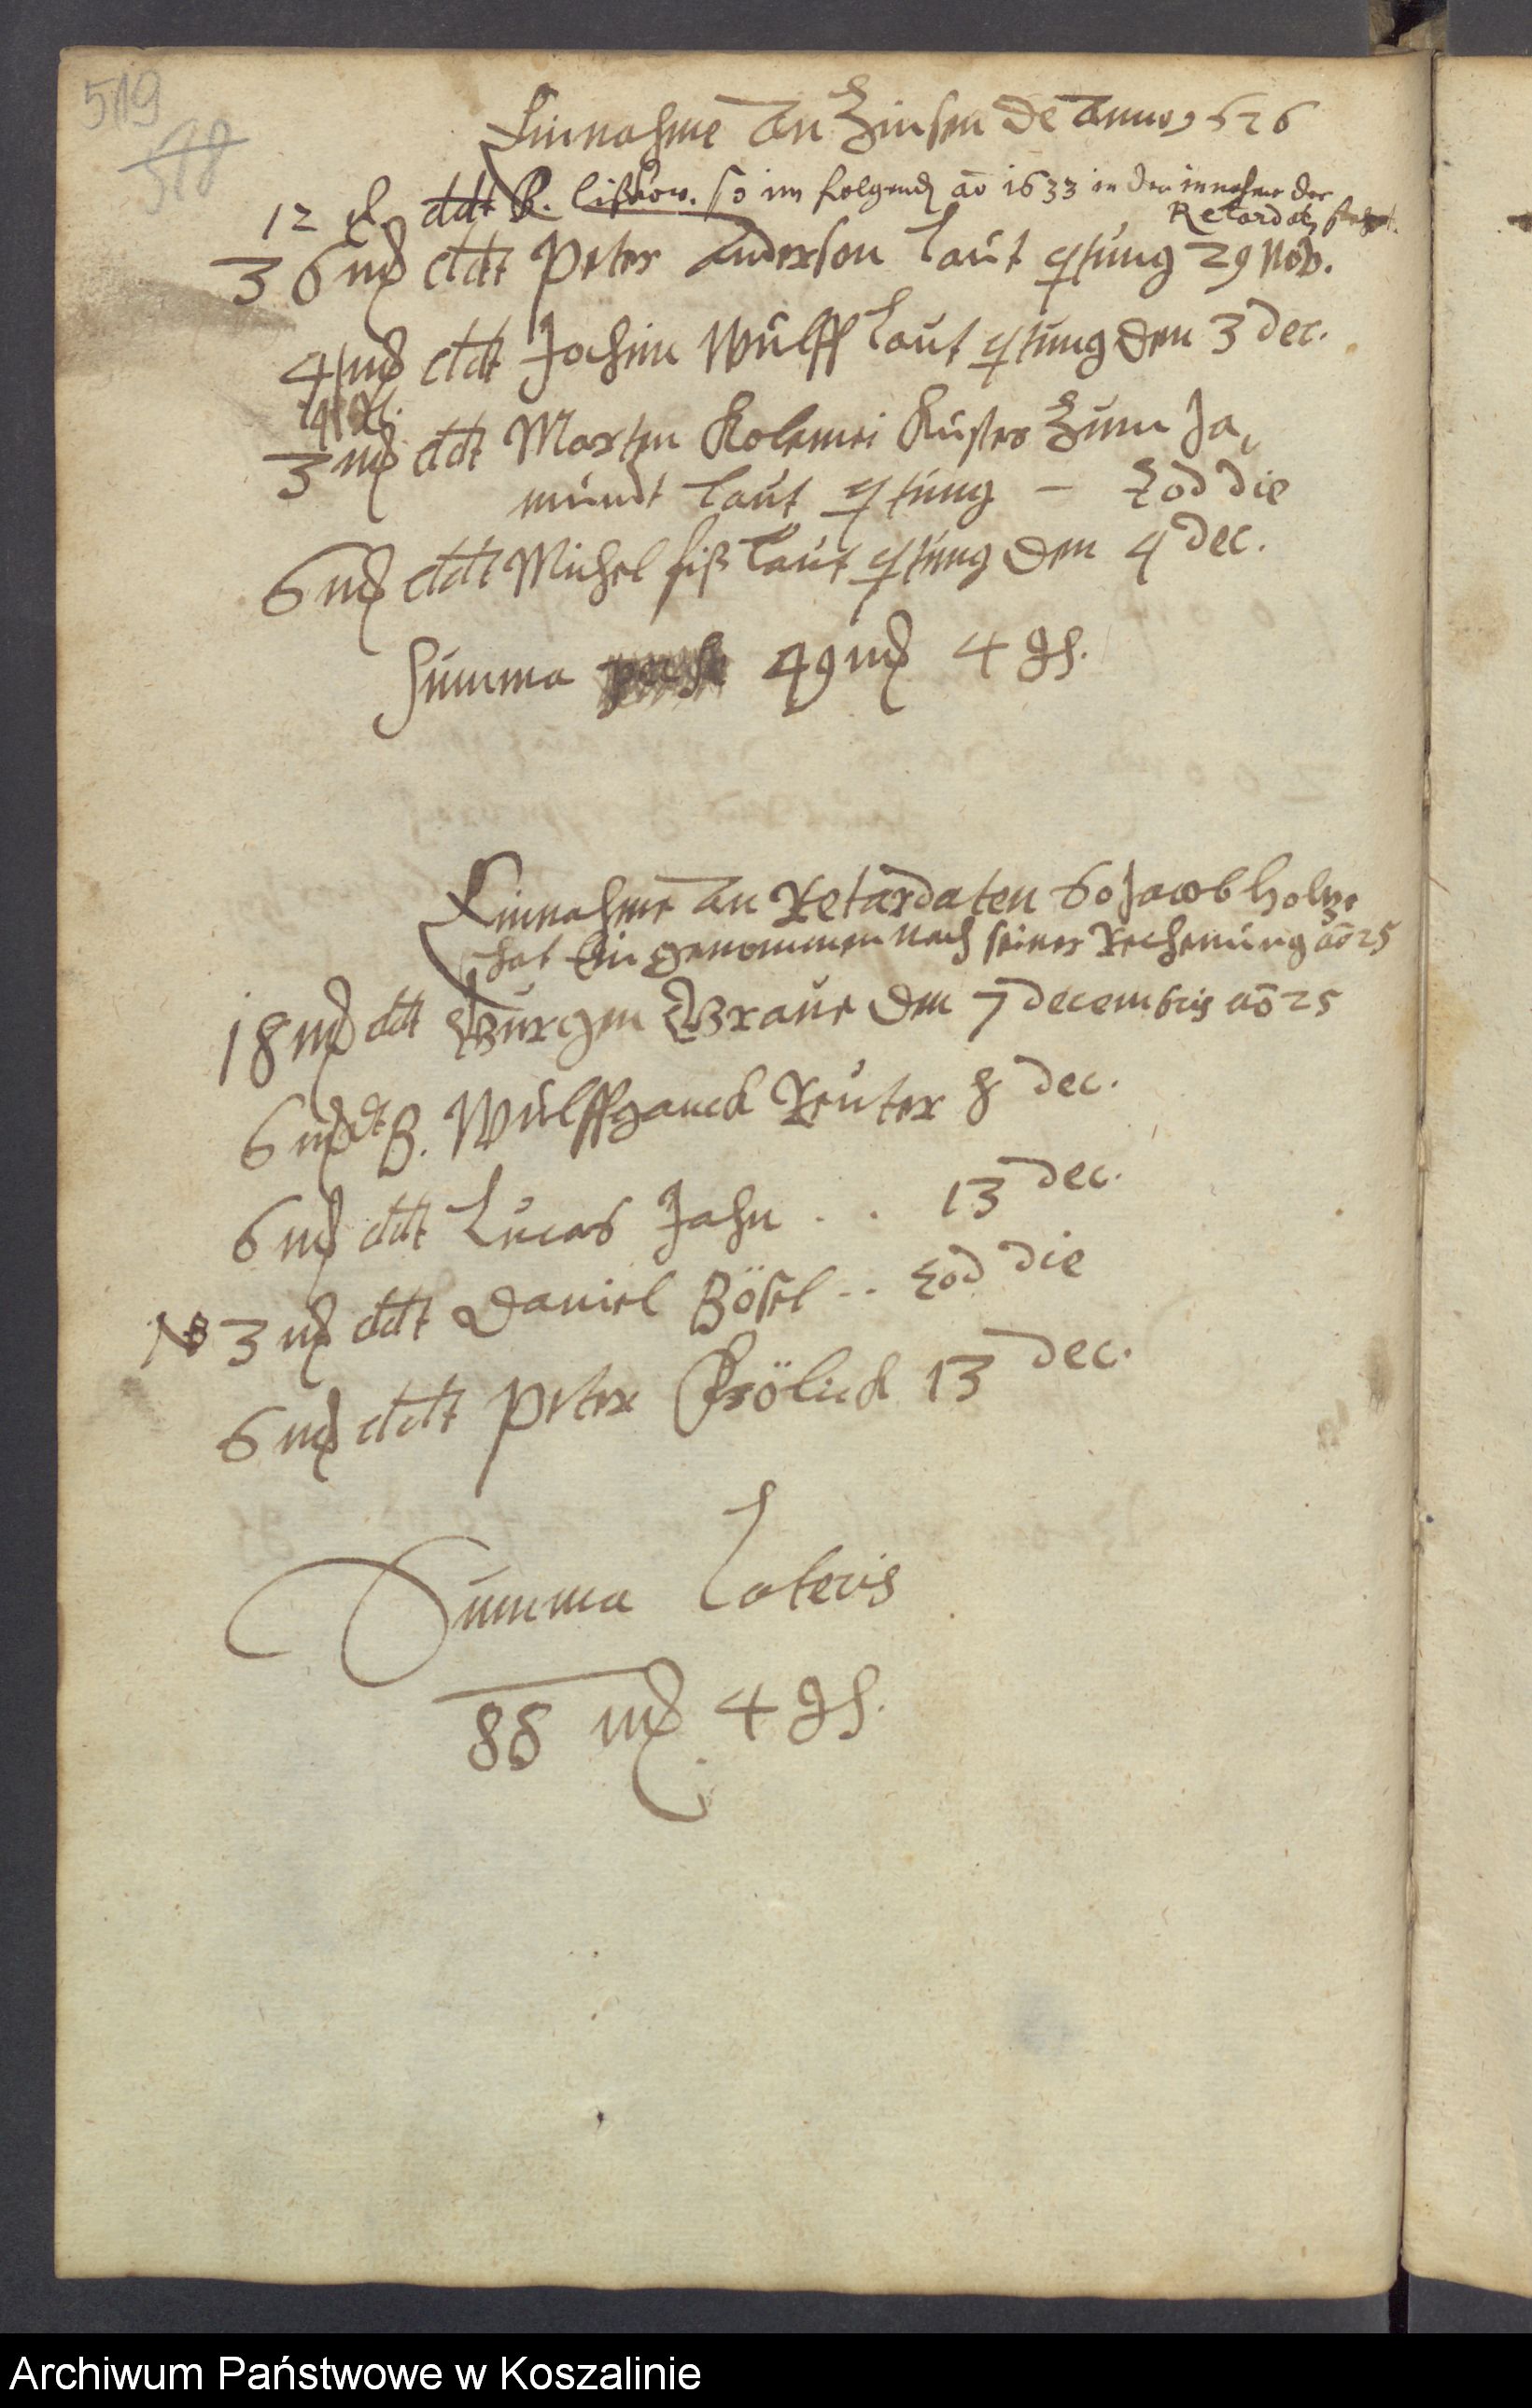 519
518
Einnahme an Zinsen de anno 1626
12 ddt B. lißkow. so im folgend ao 1633 in der innahme der
Retardat steht.
36 mk ddt Peter Anderson laut qtung 29 Nov.
4 mk ddt Jochim Wulff laut qtung den 3 Dec.
4 gl.
3 mk ddt Marten Kolemei Kuster zum Ja,
mundt laut qtung – Eod die
6 mk ddt Michel fiß laut qtung den 4 Dec.
Summa 49 mk 4 gß.
Einnahme an Retardaten so Jacob Holtze
hat Ein genommen nach seiner Rechenung ao 25
18 mk ddt Burgen Braun den 7 Decembris ao 25
6 mk dt B. Wulffganck Reuter 8 Dec.
6 mk ddt Lucas Jahn . . 13 Dec.
NB 3 mk ddt Daniel Bösel .. Eod die
6 mk ddt Peter Frölick 13 Dec.
Summa Lateris
88 mk 4 gß.
Archiwum Państwowe w Koszalinie